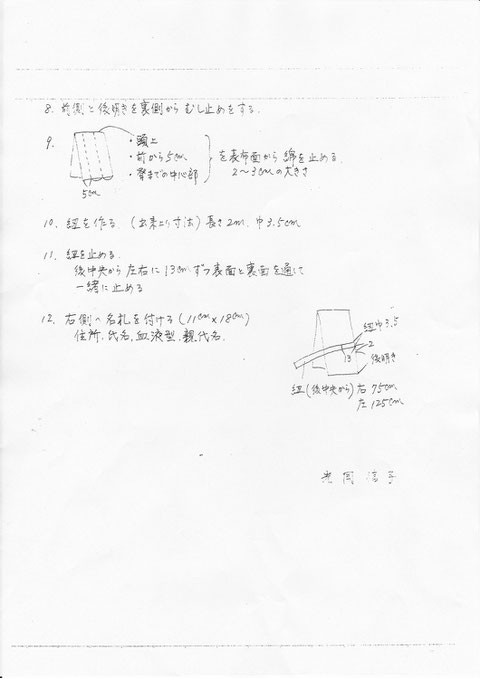 8. 前側と後明きを裏側からむし止めをする。
9.
・頭上
・前から5cm
・背までの中心部
を表布面から綿を止める
2〜3cmの大きさ
5cm
10. 紐を作る (出来上り寸法) 長さ2m、巾3.5cm
11. 紐を止める
後中央から左右に13cmずつ表面と裏面を通して
一緒に止める
12. 右側へ名札を付ける (11cm×18cm)
住所、氏名、血液型、親氏名
紐巾3.5
2
13
後明き
紐(後中央から) 右75cm
左125cm
光岡
子